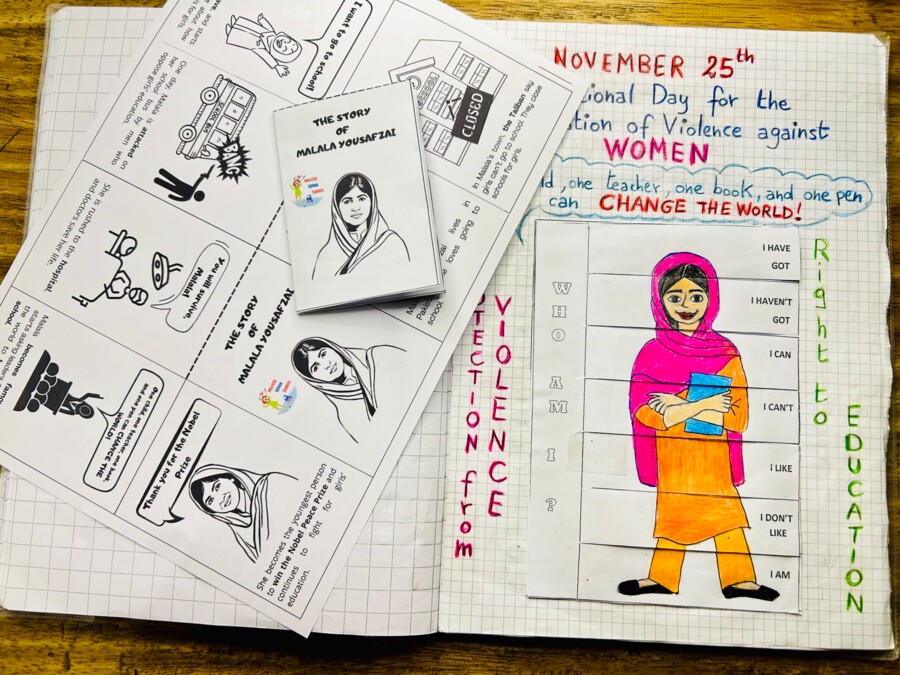 I want to go to school!
CLOSED
In Malala's town, the Taliban say
girls can't go to school. They close
schools for girls.
One day, Malala is attacked on
her school bus by men who
oppose girls' education.
SCHOOL BUS
BANG
She is rushed to the hospital,
and doctors save her life.
You will survive,
Malala!
Malala becomes famous
starts asking leaders
the world to
school.
One child, one teacher, one book,
and one pen can CHANGE THE
WORLD!
Thank you for the Nobel
Prize
She becomes the youngest person
to win the Nobel Peace Prize and
continues to fight for girls'
education.
THE STORY
OF
MALALA YOUSAFZAI
THE STORY
OF
MALALA YOUSAFZAI
lives in
loves going to
school
NOVEMBER 25th
ional Day for the
tion of Violence against
WOMEN
d, one teacher, one book, and one pen
can CHANGE THE WORLD!
TECTION from
VIOLENCE
WHO AM I ?
I HAVE
GOT
I HAVEN'T
GOT
I CAN
I CAN'T
I LIKE
I DON'T
LIKE
I AM
Right to
EDUCATION